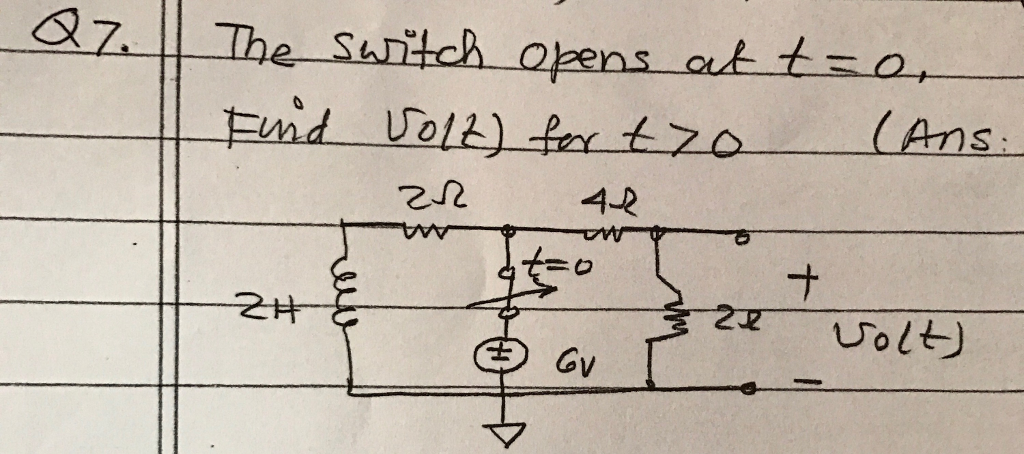 Q7. The switch opens at t=0,
Find Vo(t) for t>0 (Ans:
2Ω 4Ω
t=0
+
2H 2Ω
Vo(t)
± 6V
−